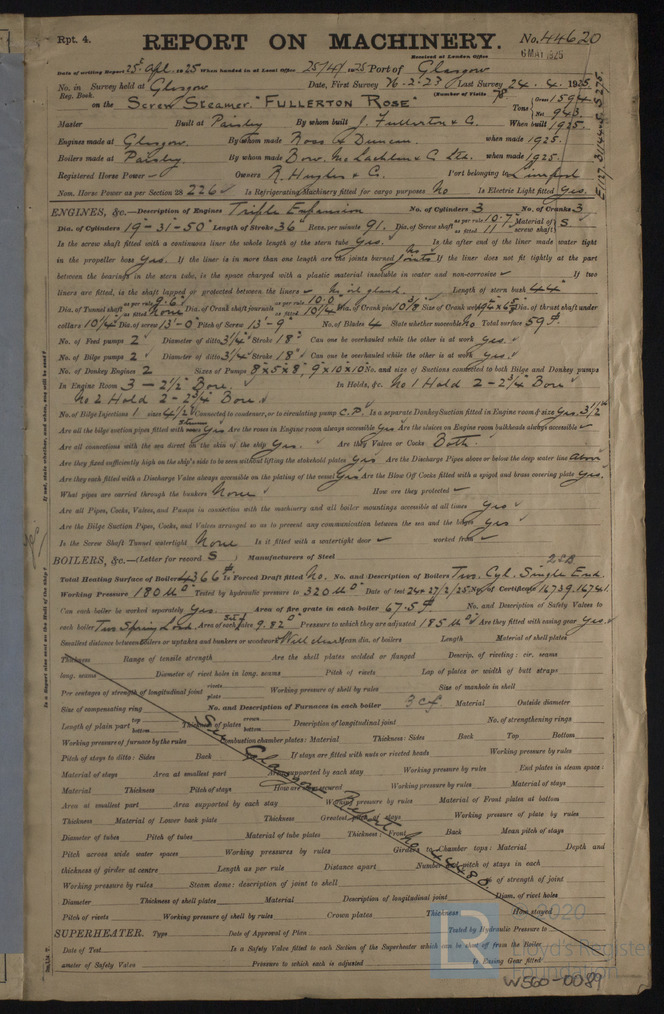 Rpt. 4.
REPORT ON MACHINERY.
No. 44620
Received at London Office
6 MAY 1925
Date of writing Report 25th Apl. 1925 When handed in at Local Office 25/4/1925 Port of Glasgow
No. in Survey held at Glasgow Date, First Survey 16-2-23 Last Survey 24. 4. 1925
Reg. Book. (Number of Visits 78)
on the Screw Steamer "FULLERTON ROSE" Tons Gross 1594 Net 943
Master Built at Paisley By whom built J. Fullerton & Co. When built 1925.
Engines made at Glasgow. By whom made Ross & Duncan. when made 1925.
Boilers made at Paisley. By whom made Bow, McLachlan & Co Ltd. when made 1925.
Registered Horse Power Owners R. Hughes & Co. Port belonging to Liverpool
Nom. Horse Power as per Section 28 226 Is Refrigerating Machinery fitted for cargo purposes No Is Electric Light fitted Yes.
ENGINES, &c.—Description of Engines Triple Expansion No. of Cylinders 3 No. of Cranks 3
Dia. of Cylinders 19-31-50" Length of Stroke 36" Revs. per minute 91. Dia. of Screw shaft as per rule 10.7" as fitted 11" Material of screw shaft S
Is the screw shaft fitted with a continuous liner the whole length of the stern tube Yes. Is the after end of the liner made water tight
in the propeller boss Yes. If the liner is in more than one length are the joints burned No joints If the liner does not fit tightly at the part
between the bearings in the stern tube, is the space charged with a plastic material insoluble in water and non-corrosive If two
liners are fitted, is the shaft lapped or protected between the liners No oil gland. Length of stern bush 44"
Dia. of Tunnel shaft as per rule 9.6" as fitted None Dia. of Crank shaft journals as per rule 10.0" as fitted 10 1/4" Dia. of Crank pin 10 3/8" Size of Crank webs Dia. of thrust shaft under
collars 10 1/4" Dia. of screw 13'-0" Pitch of Screw 13'-9" No. of Blades 4 State whether moveable No Total surface 59
No. of Feed pumps 2 Diameter of ditto 3 1/4" Stroke 18" Can one be overhauled while the other is at work Yes.
No. of Bilge pumps 2 Diameter of ditto 3 1/4" Stroke 18" Can one be overhauled while the other is at work Yes.
No. of Donkey Engines 2 Sizes of Pumps 8"x5"x8", 9"x10"x10" No. and size of Suctions connected to both Bilge and Donkey pumps
In Engine Room 3 - 2 1/2" Bore. In Holds, &c. No 1 Hold 2 - 2 3/4" Bore
No 2 Hold 2 - 2 3/4" Bore.
No. of Bilge Injections 1 sizes 4 1/2" Connected to condenser, or to circulating pump C.P. Is a separate Donkey Suction fitted in Engine room & size Yes. 3 1/2"
Are all the bilge suction pipes fitted with roses Yes Are the roses in Engine room always accessible Yes Are the sluices on Engine room bulkheads always accessible
Are all connections with the sea direct on the skin of the ship Yes. Are they Valves or Cocks Both
Are they fixed sufficiently high on the ship's side to be seen without lifting the stokehold plates Yes Are the Discharge Pipes above or below the deep water line Above
Are they each fitted with a Discharge Valve always accessible on the plating of the vessel Yes Are the Blow Off Cocks fitted with a spigot and brass covering plate Yes.
What pipes are carried through the bunkers None How are they protected
Are all Pipes, Cocks, Valves, and Pumps in connection with the machinery and all boiler mountings accessible at all times Yes
Are the Bilge Suction Pipes, Cocks, and Valves arranged so as to prevent any communication between the sea and the bilges Yes
Is the Screw Shaft Tunnel watertight None Is it fitted with a watertight door worked from
BOILERS, &c.—(Letter for record S) Manufacturers of Steel
Total Heating Surface of Boilers 4366 Is Forced Draft fitted No. No. and Description of Boilers Two. Cyl. Single End.
Working Pressure 180 lbs Tested by hydraulic pressure to 320 lbs Date of test 24 & 27/2/25 No. of Certificate 16739. 16741.
Can each boiler be worked separately Yes. Area of fire grate in each boiler 67.5 No. and Description of Safety Valves to
each boiler Two Spring Load. Area of each valve 9.82 Pressure to which they are adjusted 185 lbs Are they fitted with easing gear Yes.
Smallest distance between boilers or uptakes and bunkers or woodwork Well clear Mean dia. of boilers Length Material of shell plates
Thickness Range of tensile strength Are the shell plates welded or flanged Descrip. of riveting: cir. seams
long. seams Diameter of rivet holes in long. seams Pitch of rivets Lap of plates or width of butt straps
Per centages of strength of longitudinal joint rivets plate Working pressure of shell by rules Size of manhole in shell
Size of compensating ring No. and Description of Furnaces in each boiler 3 cf. Material Outside diameter
Length of plain part top bottom Thickness of plates crown bottom Description of longitudinal joint No. of strengthening rings
Working pressure of furnace by the rules Combustion chamber plates: Material Thickness: Sides Back Top Bottom
Pitch of stays to ditto: Sides Back If stays are fitted with nuts or riveted heads Working pressure by rules
Material of stays Area at smallest part Area supported by each stay Working pressure by rules End plates in steam space:
Material Thickness Pitch of stays How are stays secured Working pressure by rules Material of stays
Area at smallest part Area supported by each stay Working pressure by rules Material of Front plates at bottom
Thickness Material of Lower back plate Thickness Greatest pitch of stays Working pressure of plate by rules
Diameter of tubes Pitch of tubes Material of tube plates Thickness: Front Back Mean pitch of stays
Pitch across wide water spaces Working pressures by rules Girders to Chamber tops: Material Depth and
thickness of girder at centre Length as per rule Distance apart Number and pitch of stays in each
Working pressure by rules Steam dome: description of joint to shell % of strength of joint
Diameter Thickness of shell plates Material Description of longitudinal joint Diam. of rivet holes
Pitch of rivets Working pressure of shell by rules Crown plates Thickness How stayed
See Glasgow Report No 44480
SUPERHEATER. Type Date of Approval of Plan Tested by Hydraulic Pressure to
Date of Test Is a Safety Valve fitted to each Section of the Superheater which can be shut off from the Boiler
ameter of Safety Valve Pressure to which each is adjusted Is Easing Gear fitted
2020
Lloyd's Register
Foundation
W560-0089